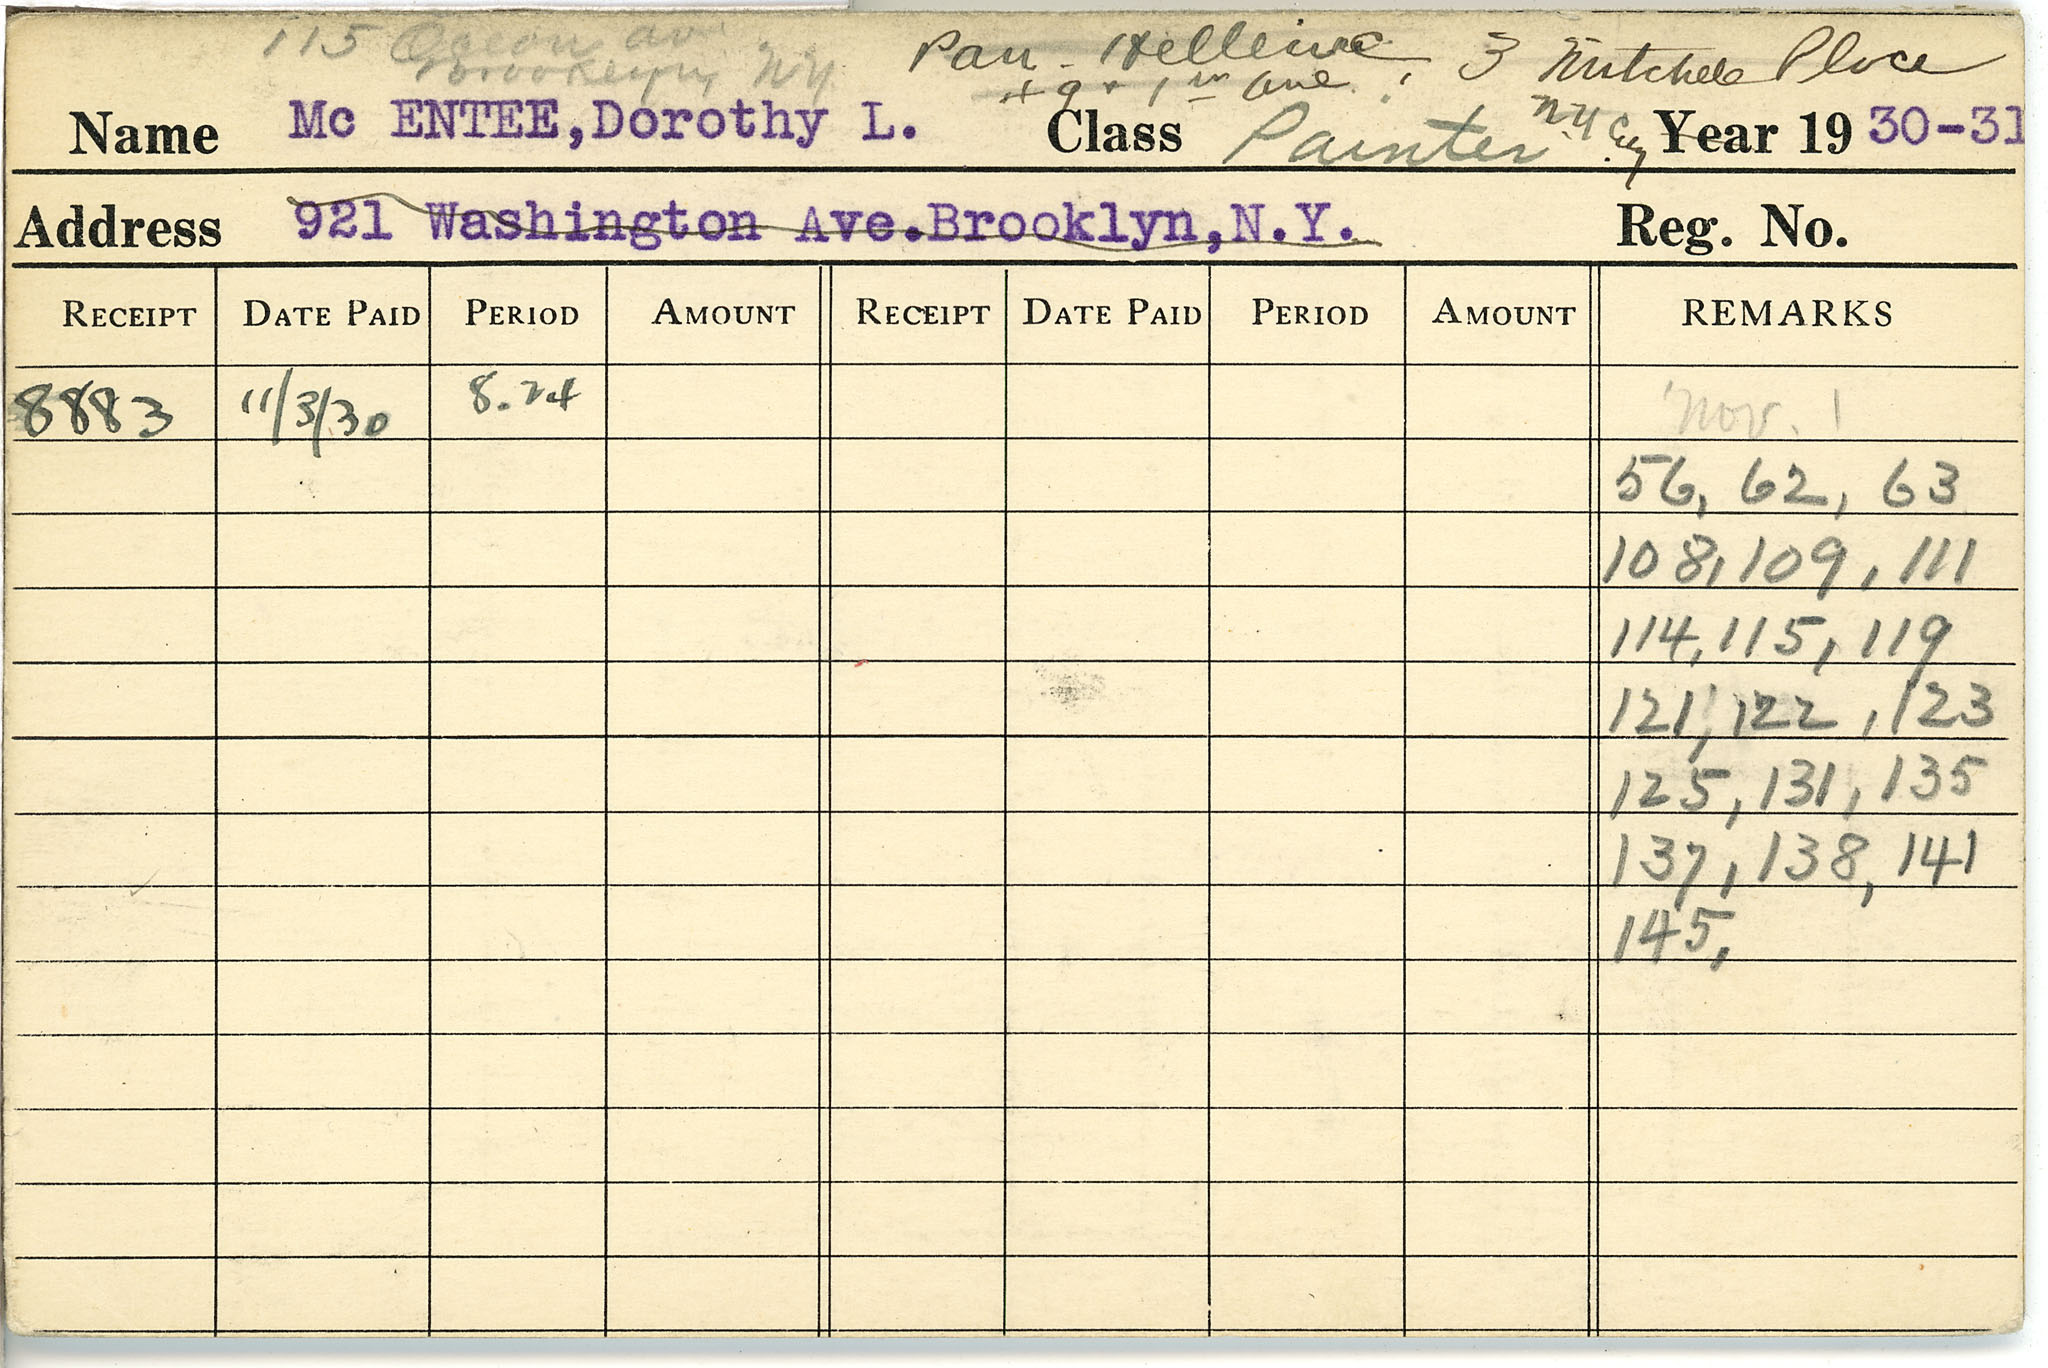 115 Ocean av Pan-Hellenic, 3 Mitchell Place
Brooklyn, NY. 49 + 1st ave. N.Y City
Name Mc ENTEE, Dorothy L. Class Painter Year 19 30-31
Address 921 Washington Ave. Brooklyn, N.Y. Reg. No.
RECEIPT DATE PAID PERIOD AMOUNT RECEIPT DATE PAID PERIOD AMOUNT REMARKS
8883 11/3/30 8.24 Nov. 1
56, 62, 63
108, 109, 111
114, 115, 119
121, 122, 123
125, 131, 135
137, 138, 141
145,